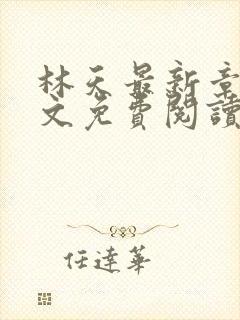 林天最新章
文免費閱讀
任達華